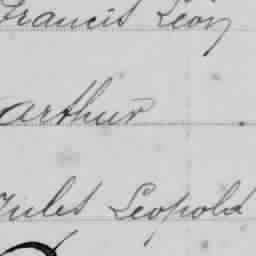 Francis Leon
Arthur
Jules Leopold